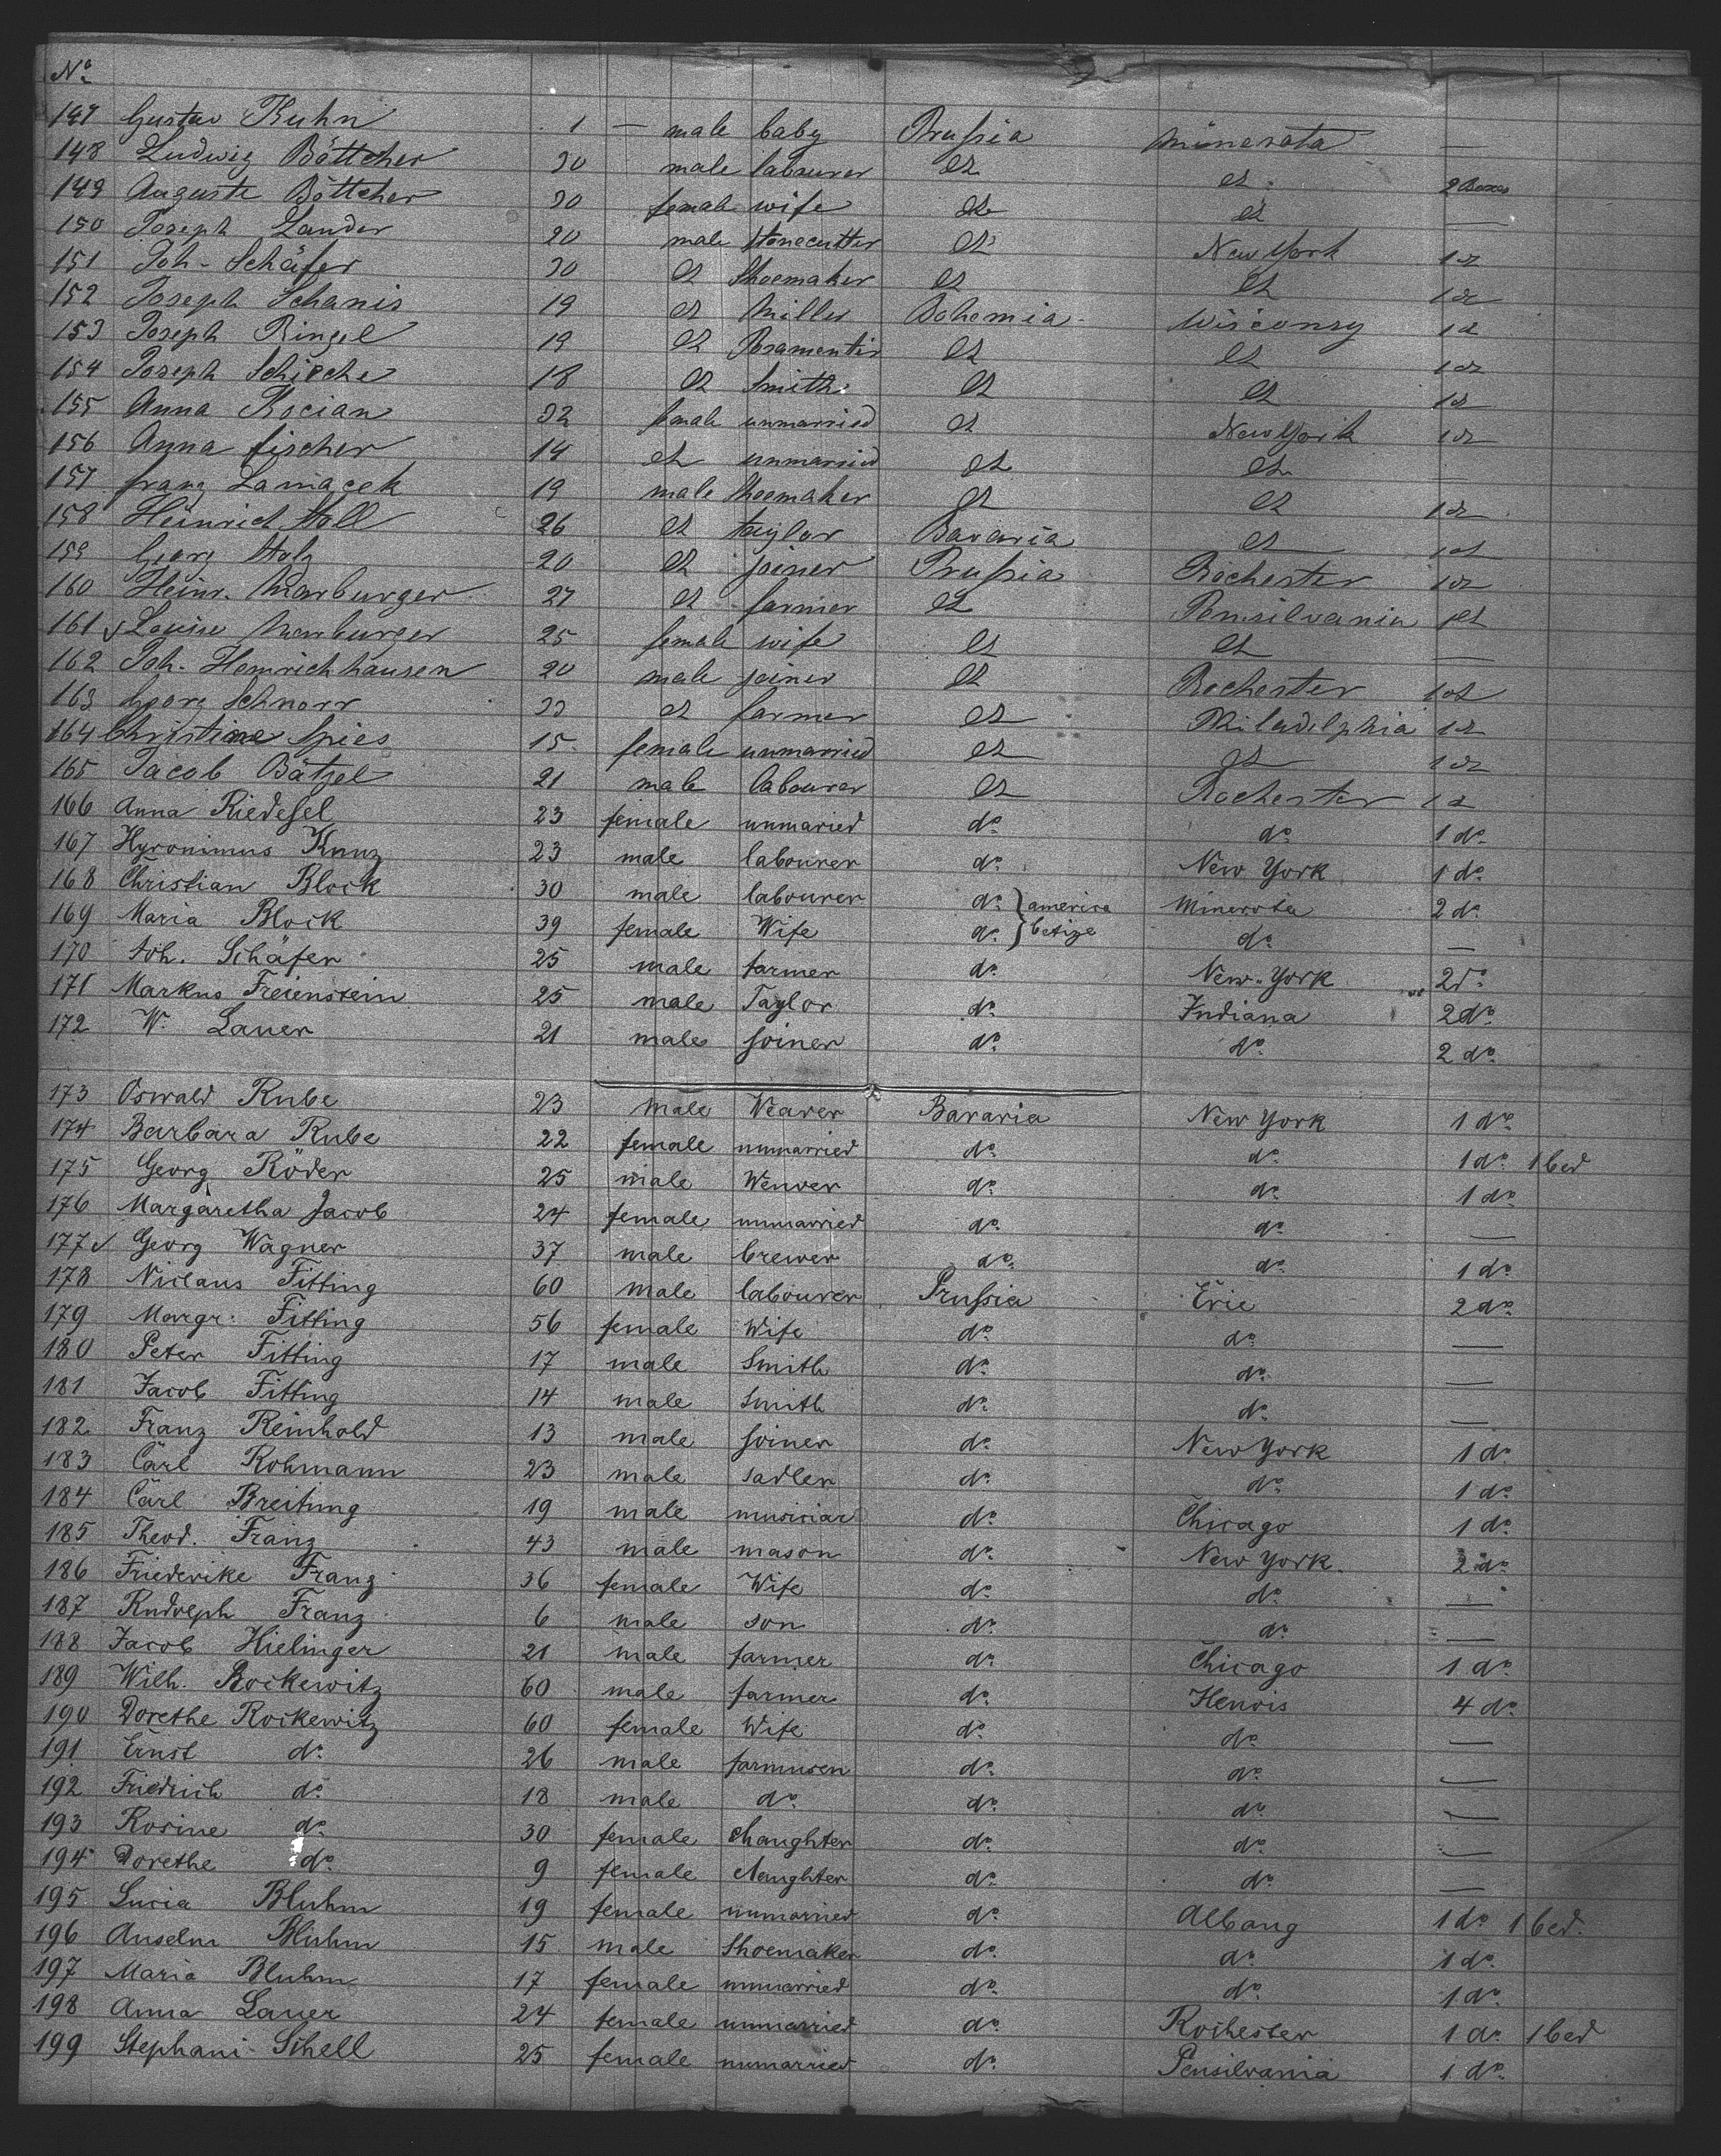 No
147 Gustav Kuhn 1 — male baby Prußia Minesota —
148 Ludwig Böttcher 30 male labourer do do 2 Boxes
149 Auguste Böttcher 30 female wife do do —
150 Joseph Lander 20 male stonecutter do New York 1 do
151 Joh. Schäfer 30 do Shoemaker do do 1 do
152 Joseph Schanis 19 do Miller Bohemia Wisconsy 1 do
153 Joseph Ringel 19 do Posamentir do do 1 do
154 Joseph Schieche 18 do Smith do do 1 do
155 Anna Kocian 32 female unmarried do New York 1 do
156 Anna Fischer 14 do unmarried do do —
157 Franz Lamacek 19 male shoemaker do do 1 do
158 Heinrich Holl 26 do taylor Bavaria do 1 do
159 Georg Holz 20 do joiner Prußia Rochester 1 do
160 Heinr. Marburger 27 do farmer do Pennsilvania 1 do
161 Louise Marburger 25 female wife do do —
162 Joh. Hemrichhausen 20 male joiner do Rochester 1 do
163 Georg Schnorr 33 do farmer do Philadelphia 1 do
164 Christine Spies 15 female unmarried do do 1 do
165 Jacob Bätzel 21 male labourer do Rochester 1 do
166 Anna Riedesel 23 female unmaried do do 1 do
167 Hyronimus Kunz 23 male labourer do New York 1 do
168 Christian Block 30 male labourer do } america Minesota 2 do
169 Maria Block 39 female Wife do } Citize do —
170 Joh. Schäfer 25 male farmer do New-York 2 do
171 Markus Freienstein 25 male Taylor do Indiana 2 do
172 W. Lauer 21 male joiner do do 2 do
173 Oswald Rube 23 male Weaver Bavaria New York 1 do
174 Barbara Rube 22 female unmarried do do 1 do 1 bed
175 Georg Röder 25 male Weaver do do 1 do
176 Margaretha Jacob 24 female unmarried do do —
177 Georg Wagner 37 male brewer do do 1 do
178 Niclaus Fitting 60 male labourer Prußia Erie 2 do
179 Margr. Fitting 56 female Wife do do —
180 Peter Fitting 17 male Smith do do —
181 Jacob Fitting 14 male Smith do do —
182 Franz Reinhold 13 male joiner do New York 1 do
183 Carl Rohmann 23 male sadler do do 1 do
184 Carl Breitung 19 male musician do Chicago 1 do
185 Theod. Franz 43 male mason do New York 2 do
186 Friederike Franz 36 female Wife do do —
187 Rudolph Franz 6 male son do do —
188 Jacob Hielinger 21 male farmer do Chicago 1 do
189 Wilh. Rockewitz 60 male farmer do Ilenois 4 do
190 Dorethe Rockewitz 60 female Wife do do —
191 Ernst do 26 male farmusen do do —
192 Friedrich do 18 male do do do —
193 Rosine do 30 female daughter do do —
194 Dorethe do 9 female daughter do do —
195 Lucia Bluhm 19 female unmarried do Albany 1 do 1 bed.
196 Anselm Bluhm 15 male Shoemaker do do 1 do
197 Maria Bluhm 17 female unmarried do do 1 do
198 Anna Lauer 24 female unmarried do Rochester 1 do 1 bed
199 Stephani Schell 25 female unmarried do Pensilvania 1 do